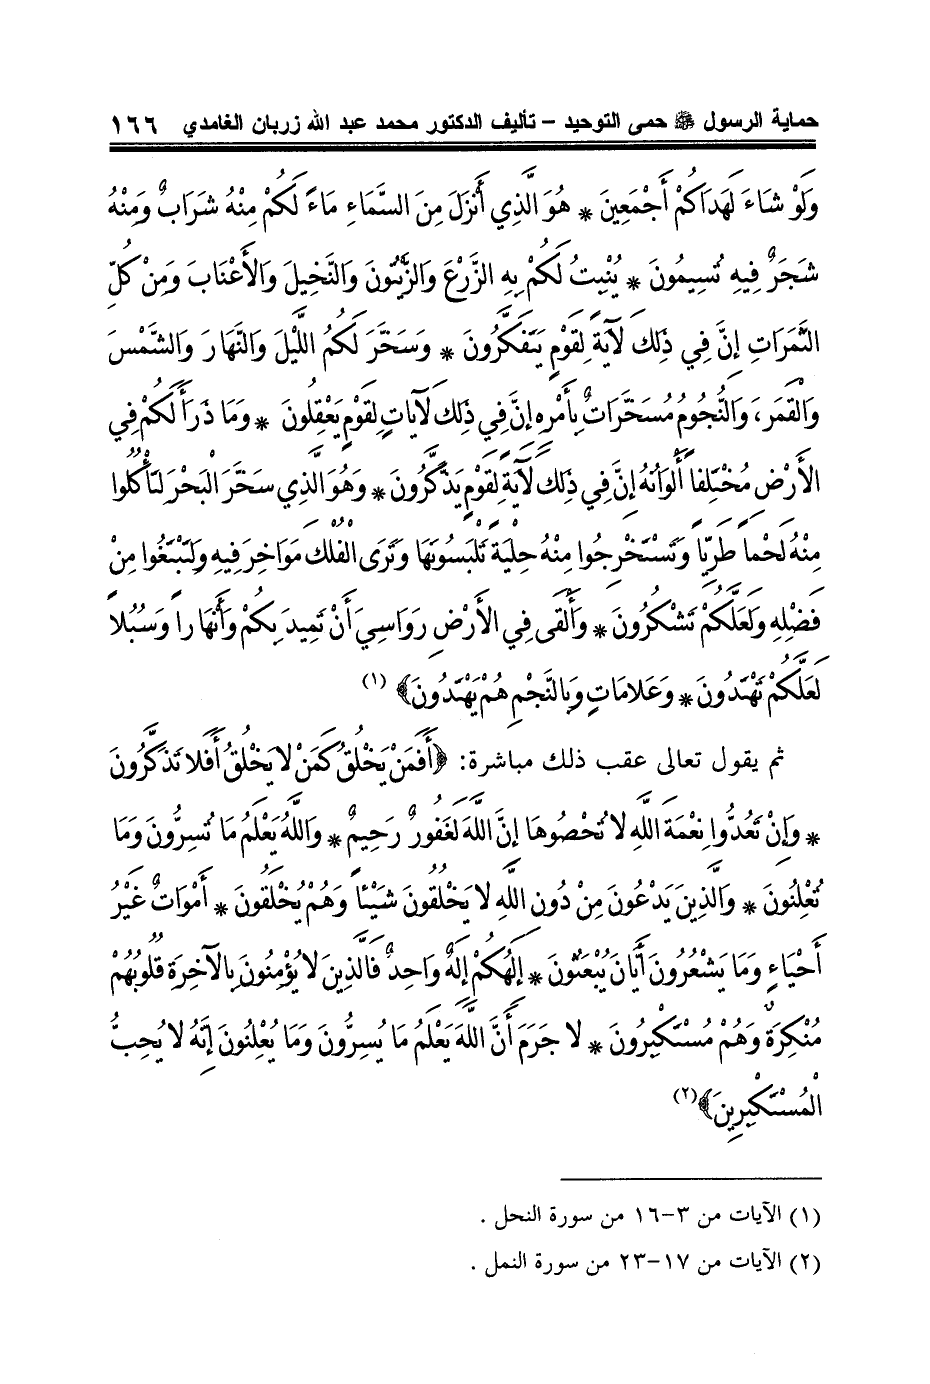 حماية الرسول ﷺ حمى التوحيد – تأليف الدكتور محمد عبد الله زربان الغامدي ١٦٦
وَلَوْ شَاءَ لَهَدَاكُمْ أَجْمَعِينَ * هُوَ الَّذِي أَنْزَلَ مِنَ السَّمَاءِ مَاءً لَكُمْ مِنْهُ شَرَابٌ وَمِنْهُ
شَجَرٌ فِيهِ تُسِيمُونَ * يُنْبِتُ لَكُمْ بِهِ الزَّرْعَ وَالزَّيْتُونَ وَالنَّخِيلَ وَالأَعْنَابَ وَمِنْ كُلِّ
الثَّمَرَاتِ إِنَّ فِي ذَلِكَ لَآيَةً لِقَوْمٍ يَتَفَكَّرُونَ * وَسَخَّرَ لَكُمُ اللَّيْلَ وَالنَّهَارَ وَالشَّمْسَ
وَالْقَمَرَ، وَالنُّجُومُ مُسَخَّرَاتٌ بِأَمْرِهِ إِنَّ فِي ذَلِكَ لَآيَاتٍ لِقَوْمٍ يَعْقِلُونَ * وَمَا ذَرَأَ لَكُمْ فِي
الأَرْضِ مُخْتَلِفاً أَلْوَانُهُ إِنَّ فِي ذَلِكَ لَآيَةً لِقَوْمٍ يَذَّكَّرُونَ * وَهُوَ الَّذِي سَخَّرَ الْبَحْرَ لِتَأْكُلُوا
مِنْهُ لَحْماً طَرِيّاً وَتَسْتَخْرِجُوا مِنْهُ حِلْيَةً تَلْبَسُونَهَا وَتَرَى الْفُلْكَ مَوَاخِرَ فِيهِ وَلِتَبْتَغُوا مِنْ
فَضْلِهِ وَلَعَلَّكُمْ تَشْكُرُونَ * وَأَلْقَى فِي الأَرْضِ رَوَاسِيَ أَنْ تَمِيدَ بِكُمْ وَأَنْهَاراً وَسُبُلاً
لَعَلَّكُمْ تَهْتَدُونَ * وَعَلامَاتٍ وَبِالنَّجْمِ هُمْ يَهْتَدُونَ﴾ (١)
ثم يقول تعالى عقب ذلك مباشرة: ﴿أَفَمَنْ يَخْلُقُ كَمَنْ لا يَخْلُقُ أَفَلا تَذَكَّرُونَ
* وَإِنْ تَعُدُّوا نِعْمَةَ اللَّهِ لا تُحْصُوهَا إِنَّ اللَّهَ لَغَفُورٌ رَحِيمٌ * وَاللَّهُ يَعْلَمُ مَا تُسِرُّونَ وَمَا
تُعْلِنُونَ * وَالَّذِينَ يَدْعُونَ مِنْ دُونِ اللَّهِ لا يَخْلُقُونَ شَيْئاً وَهُمْ يُخْلَقُونَ * أَمْوَاتٌ غَيْرُ
أَحْيَاءٍ وَمَا يَشْعُرُونَ أَيَّانَ يُبْعَثُونَ * إِلَهُكُمْ إِلَهٌ وَاحِدٌ فَالَّذِينَ لا يُؤْمِنُونَ بِالآخِرَةِ قُلُوبُهُمْ
مُنْكِرَةٌ وَهُمْ مُسْتَكْبِرُونَ * لا جَرَمَ أَنَّ اللَّهَ يَعْلَمُ مَا يُسِرُّونَ وَمَا يُعْلِنُونَ إِنَّهُ لا يُحِبُّ
الْمُسْتَكْبِرِينَ﴾(٢)
(١) الآيات من ٣–١٦ من سورة النحل .
(٢) الآيات من ١٧–٢٣ من سورة النمل .